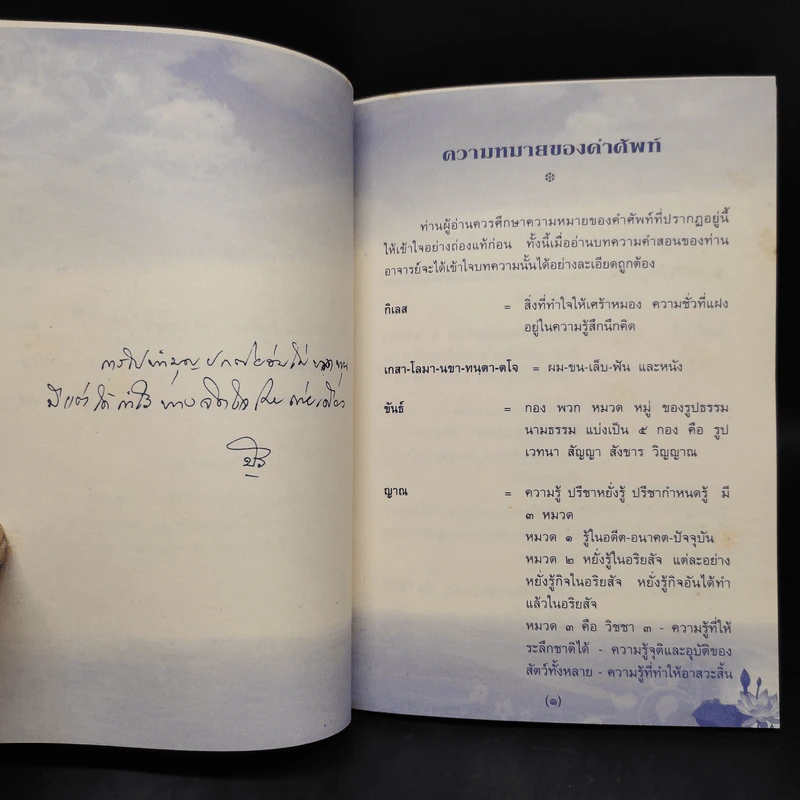 มีแต่ได้กำไร ทาง
ความหมายของคำศัพท์
ท่านผู้อ่านควรศึกษาความหมายของคำศัพท์ที่ปรากฏอยู่นี้
ให้เข้าใจอย่างถ่องแท้ก่อน ทั้งนี้เมื่ออ่านบทความคำสอนของท่าน
อาจารย์จะได้เข้าใจบทความนั้นได้อย่างละเอียดถูกต้อง
กิเลส = สิ่งที่ทำใจให้เศร้าหมอง ความชั่วที่แฝง
อยู่ในความรู้สึกนึกคิด
เกสา-โลมา-นขา-ทนฺตา-ตโจ = ผม-ขน-เล็บ-ฟัน และหนัง
ขันธ์ = กอง พวก หมวด หมู่ ของรูปธรรม
นามธรรม แบ่งเป็น ๕ กอง คือ รูป
เวทนา สัญญา สังขาร วิญญาณ
ญาณ = ความรู้ ปรีชาหยั่งรู้ ปรีชากำหนดรู้ มี
๓ หมวด
หมวด ๑ รู้ในอดีต-อนาคต-ปัจจุบัน
หมวด ๒ หยั่งรู้ในอริยสัจ แต่ละอย่าง
หยั่งรู้กิจในอริยสัจ หยั่งรู้กิจอันได้ทำ
แล้วในอริยสัจ
หมวด ๓ คือ วิชชา ๓ - ความรู้ที่ให้
ระลึกชาติได้ - ความรู้จุติและอุบัติของ
สัตว์ทั้งหลาย - ความรู้ที่ทำให้อาสวะสิ้น
(๑)